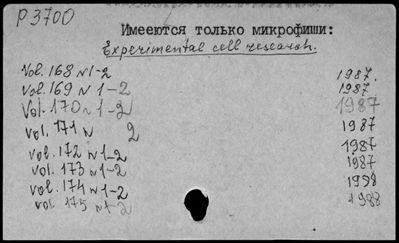 P3700
Имееются только микрофиши:
Experimental cell research.
Vol. 168 N1-2 1987.
Vol. 169 N 1-2 1987.
Vol. 170 N 1-2 1987
Vol. 171 N 2 1987
Vol. 172 N 1-2 1987
Vol. 173 N 1-2 1987
Vol. 174 N 1-2 1988
Vol. 175 N 1-2 1988